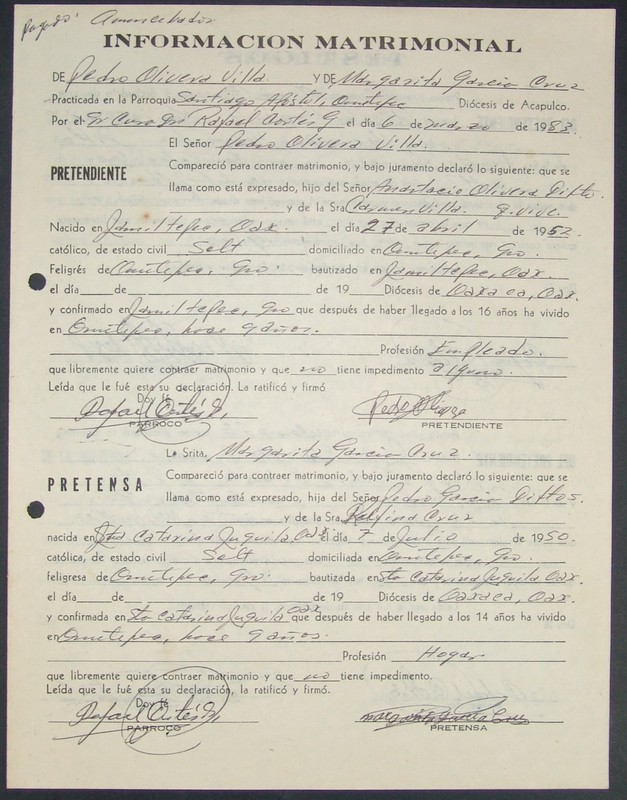 Pagado Amancebados
INFORMACION MATRIMONIAL
DE Pedro Olivera Villa. Y DE Margarita Garcia Cruz
Practicada en la Parroquia Santiago Apóstol, Ometepec Diócesis de Acapulco.
Por el Sr Cura Dn Rafael Cortés G el día 6 de marzo de 1983.
El Señor Pedro Olivera Villa.
PRETENDIENTE
Compareció para contraer matrimonio, y bajo juramento declaró lo siguiente: que se
llama como está expresado, hijo del Señor Anastacio Olivera Difto.
y de la Sra. Carmen Villa. q. vive.
Nacido en Jamiltepec, Oax. el día 27 de abril de 1952.
católico, de estado civil Solt domiciliado en Ometepec, Gro.
Feligrés de Ometepec, Gro. bautizado en Jamiltepec, Oax.
el día de de 19 Diócesis de Oaxaca, Oax.
y confirmado en Jamiltepec, Gro que después de haber llegado a los 16 años ha vivido
en Ometepec, hace 9 años.
Profesión Empleado.
que libremente quiere contraer matrimonio y que no tiene impedimento alguno.
Leída que le fué esta su declaración. La ratificó y firmó
Doy fé
Rafael Cortés G, Pedro Olivera
PARROCO PRETENDIENTE
La Srita. Margarita Garcia Cruz.
PRETENSA
Compareció para contraer matrimonio, y bajo juramento declaró lo siguiente: que se
llama como está expresado, hija del Señor Pedro Garcia Diftos.
y de la Sra. Cruz
nacida en Sta Catarina Juquila Oax el día 7 de Julio de 1950.
católica, de estado civil Solt domiciliada en Ometepec, Gro.
feligresa de Ometepec, Gro. bautizada en Sta Catarina Juquila Oax.
el día de de 19 Diócesis de Oaxaca, Oax.
y confirmada en Sta Catarina Juquila Oax que después de haber llegado a los 14 años ha vivido
en Ometepec, hace 9 años.
Profesión Hogar
que libremente quiere contraer matrimonio y que no tiene impedimento.
Leída que le fué esta su declaración, la ratificó y firmó.
Doy fé
Rafael Cortés G, Margarita Garcia Cruz
PARROCO PRETENSA